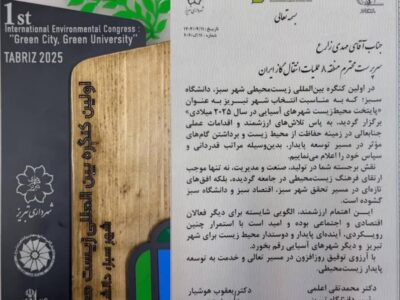 1st
International Environmental Congress :
"Green City, Green University"
TABRIZ 2025
اولین کنگره بین المللی زیست
شهر سبز، دانش
شهرداری تبریز
بسمه تعالی
جناب آقای مهدی زارع
سرپرست محترم منطقه ۸ عملیات انتقال گاز ایران
در اولین کنگره بین‌المللی زیست‌محیطی شهر سبز، دانشگاه
سبز؛ که به مناسبت انتخاب شهر تبریز به عنوان
«پایتخت محیط‌زیست شهرهای آسیایی در سال ۲۰۲۵ میلادی»
برگزار گردید، به پاس تلاش‌های ارزشمند و اقدامات عملی
جنابعالی در زمینه حفاظت از محیط زیست و برداشتن گام‌های
مؤثر در مسیر توسعه پایدار، بدین‌وسیله مراتب قدردانی و
سپاس خود را اعلام می‌نماییم.
نقش برجسته شما در تولید، صنعت و مدیریت، نه تنها موجب
ارتقای فرهنگ زیست‌محیطی در جامعه گردیده، بلکه افق‌های
تازه‌ای در مسیر تحقق شهر سبز، اقتصاد سبز و دانشگاه سبز
گشوده است.
این اهتمام ارزشمند، الگویی شایسته برای دیگر فعالان
اقتصادی و اجتماعی بوده و امید است با استمرار چنین
رویکردی، آینده‌ای پایدار و دوستدار محیط زیست برای شهر
تبریز و دیگر شهرهای آسیایی رقم بخورد.
با آرزوی توفیق روزافزون در مسیر تعالی و خدمت به توسعه
پایدار زیست‌محیطی.
دکتر محمدتقی اعلمی
دکتر یعقوب هوشیار